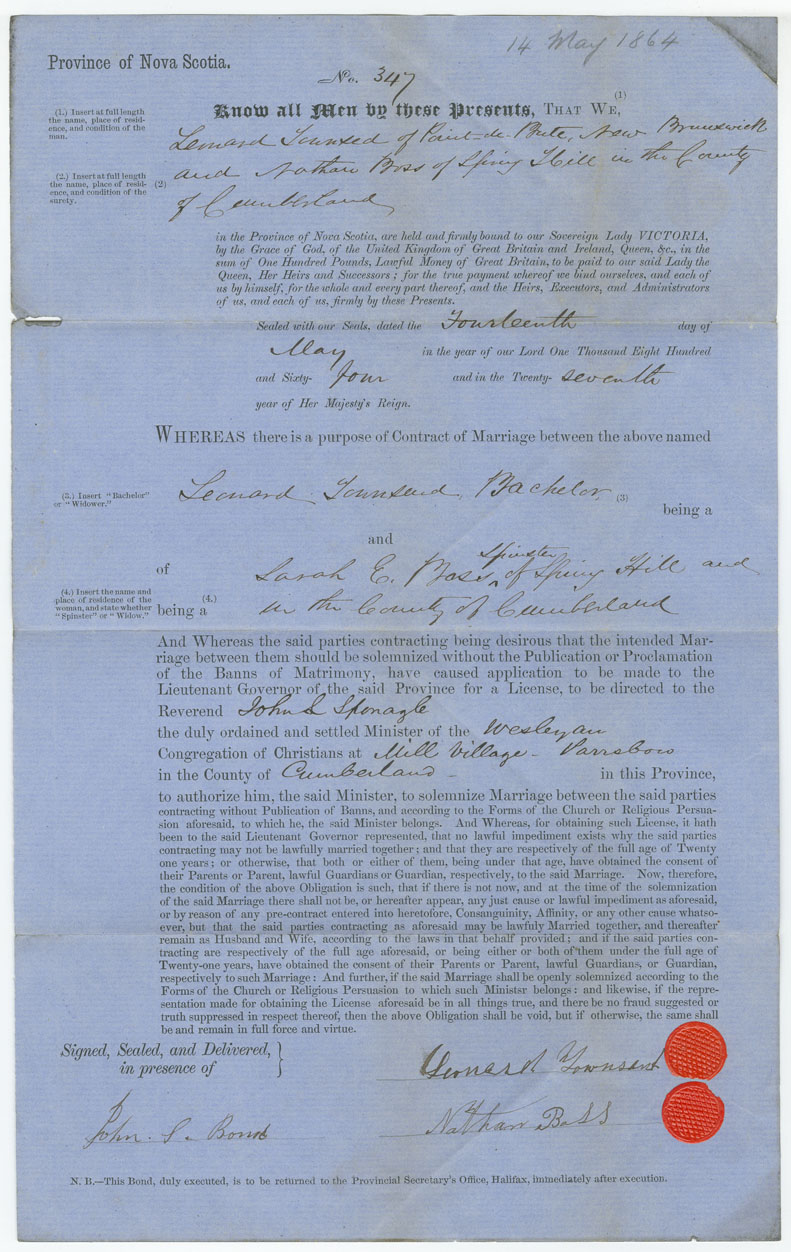 14 May 1864
Province of Nova Scotia.
No. 347
(1)
Know all Men by these Presents, THAT WE,
(1.) Insert at full length
the name, place of resid-
ence, and condition of the
man.
Leonard Townsed of Point-de-Bute, New Brunswick
(2.) Insert at full length
the name, place of resid-
ence, and condition of the
surety.
(2)
and Nathan Boss of Spring Hill in the County
of Cumberland
in the Province of Nova Scotia, are held and firmly bound to our Sovereign Lady VICTORIA,
by the Grace of God, of the United Kingdom of Great Britain and Ireland, Queen, &c., in the
sum of One Hundred Pounds, Lawful Money of Great Britain, to be paid to our said Lady the
Queen, Her Heirs and Successors; for the true payment whereof we bind ourselves, and each of
us by himself, for the whole and every part thereof, and the Heirs, Executors, and Administrators
of us, and each of us, firmly by these Presents.
Sealed with our Seals, dated the Fourteenth day of
May in the year of our Lord One Thousand Eight Hundred
and Sixty- four and in the Twenty- seventh
year of Her Majesty's Reign.
WHEREAS there is a purpose of Contract of Marriage between the above named
(3.) Insert "Bachelor"
or "Widower."
Leonard Townsend, Bachelor, (3)
being a
and
Spinster
of Sarah E. Boss, ^ of Spring Hill and
(4.) Insert the name and
place of residence of the
woman, and state whether
"Spinster" or "Widow."
(4.)
being a in the County of Cumberland
And Whereas the said parties contracting being desirous that the intended Mar-
riage between them should be solemnized without the Publication or Proclamation
of the Banns of Matrimony, have caused application to be made to the
Lieutenant Governor of the said Province for a License, to be directed to the
Reverend John S Sponagle
the duly ordained and settled Minister of the Wesleyan
Congregation of Christians at Mill Village - Parrsboro
in the County of Cumberland - in this Province,
to authorize him, the said Minister, to solemnize Marriage between the said parties
contracting without Publication of Banns, and according to the Forms of the Church or Religious Persua-
sion aforesaid, to which he, the said Minister belongs. And Whereas, for obtaining such License, it hath
been to the said Lieutenant Governor represented, that no lawful impediment exists why the said parties
contracting may not be lawfully married together; and that they are respectively of the full age of Twenty
one years; or otherwise, that both or either of them, being under that age, have obtained the consent of
their Parents or Parent, lawful Guardians or Guardian, respectively, to the said Marriage. Now, therefore,
the condition of the above Obligation is such, that if there is not now, and at the time of the solemnization
of the said Marriage there shall not be, or hereafter appear, any just cause or lawful impediment as aforesaid,
or by reason of any pre-contract entered into heretofore, Consanguinity, Affinity, or any other cause whatso-
ever, but that the said parties contracting as aforesaid may be lawfuly Married together, and thereafter
remain as Husband and Wife, according to the laws in that behalf provided; and if the said parties con-
tracting are respectively of the full age aforesaid, or being either or both of them under the full age of
Twenty-one years, have obtained the consent of their Parents or Parent, lawful Guardians, or Guardian,
respectively to such Marriage: And further, if the said Marriage shall be openly solemnized according to the
Forms of the Church or Religious Persuasion to which such Ministsr belongs: and likewise, if the repre-
sentation made for obtaining the License aforesaid be in all things true, and there be no fraud suggested or
truth suppressed in respect thereof, then the above Obligation shall be void, but if otherwise, the same shall
be and remain in full force and virtue.
Signed, Sealed, and Delivered,
in presence of
Leonard Townsend
John S. Bond
Nathan Boss
N. B.—This Bond, duly executed, is to be returned to the Provincial Secretary's Office, Halifax, immediately after execution.